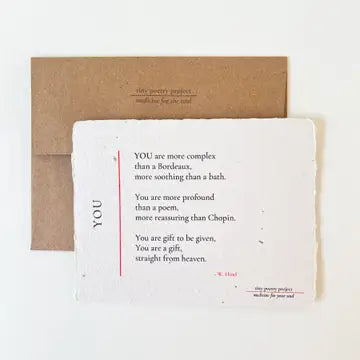 tiny poetry project
medicine for the soul
YOU
YOU are more complex
than a Bordeaux,
more soothing than a bath.
You are more profound
than a poem,
more reassuring than Chopin.
You are gift to be given,
You are a gift,
straight from heaven.
tiny poetry project
medicine for your soul